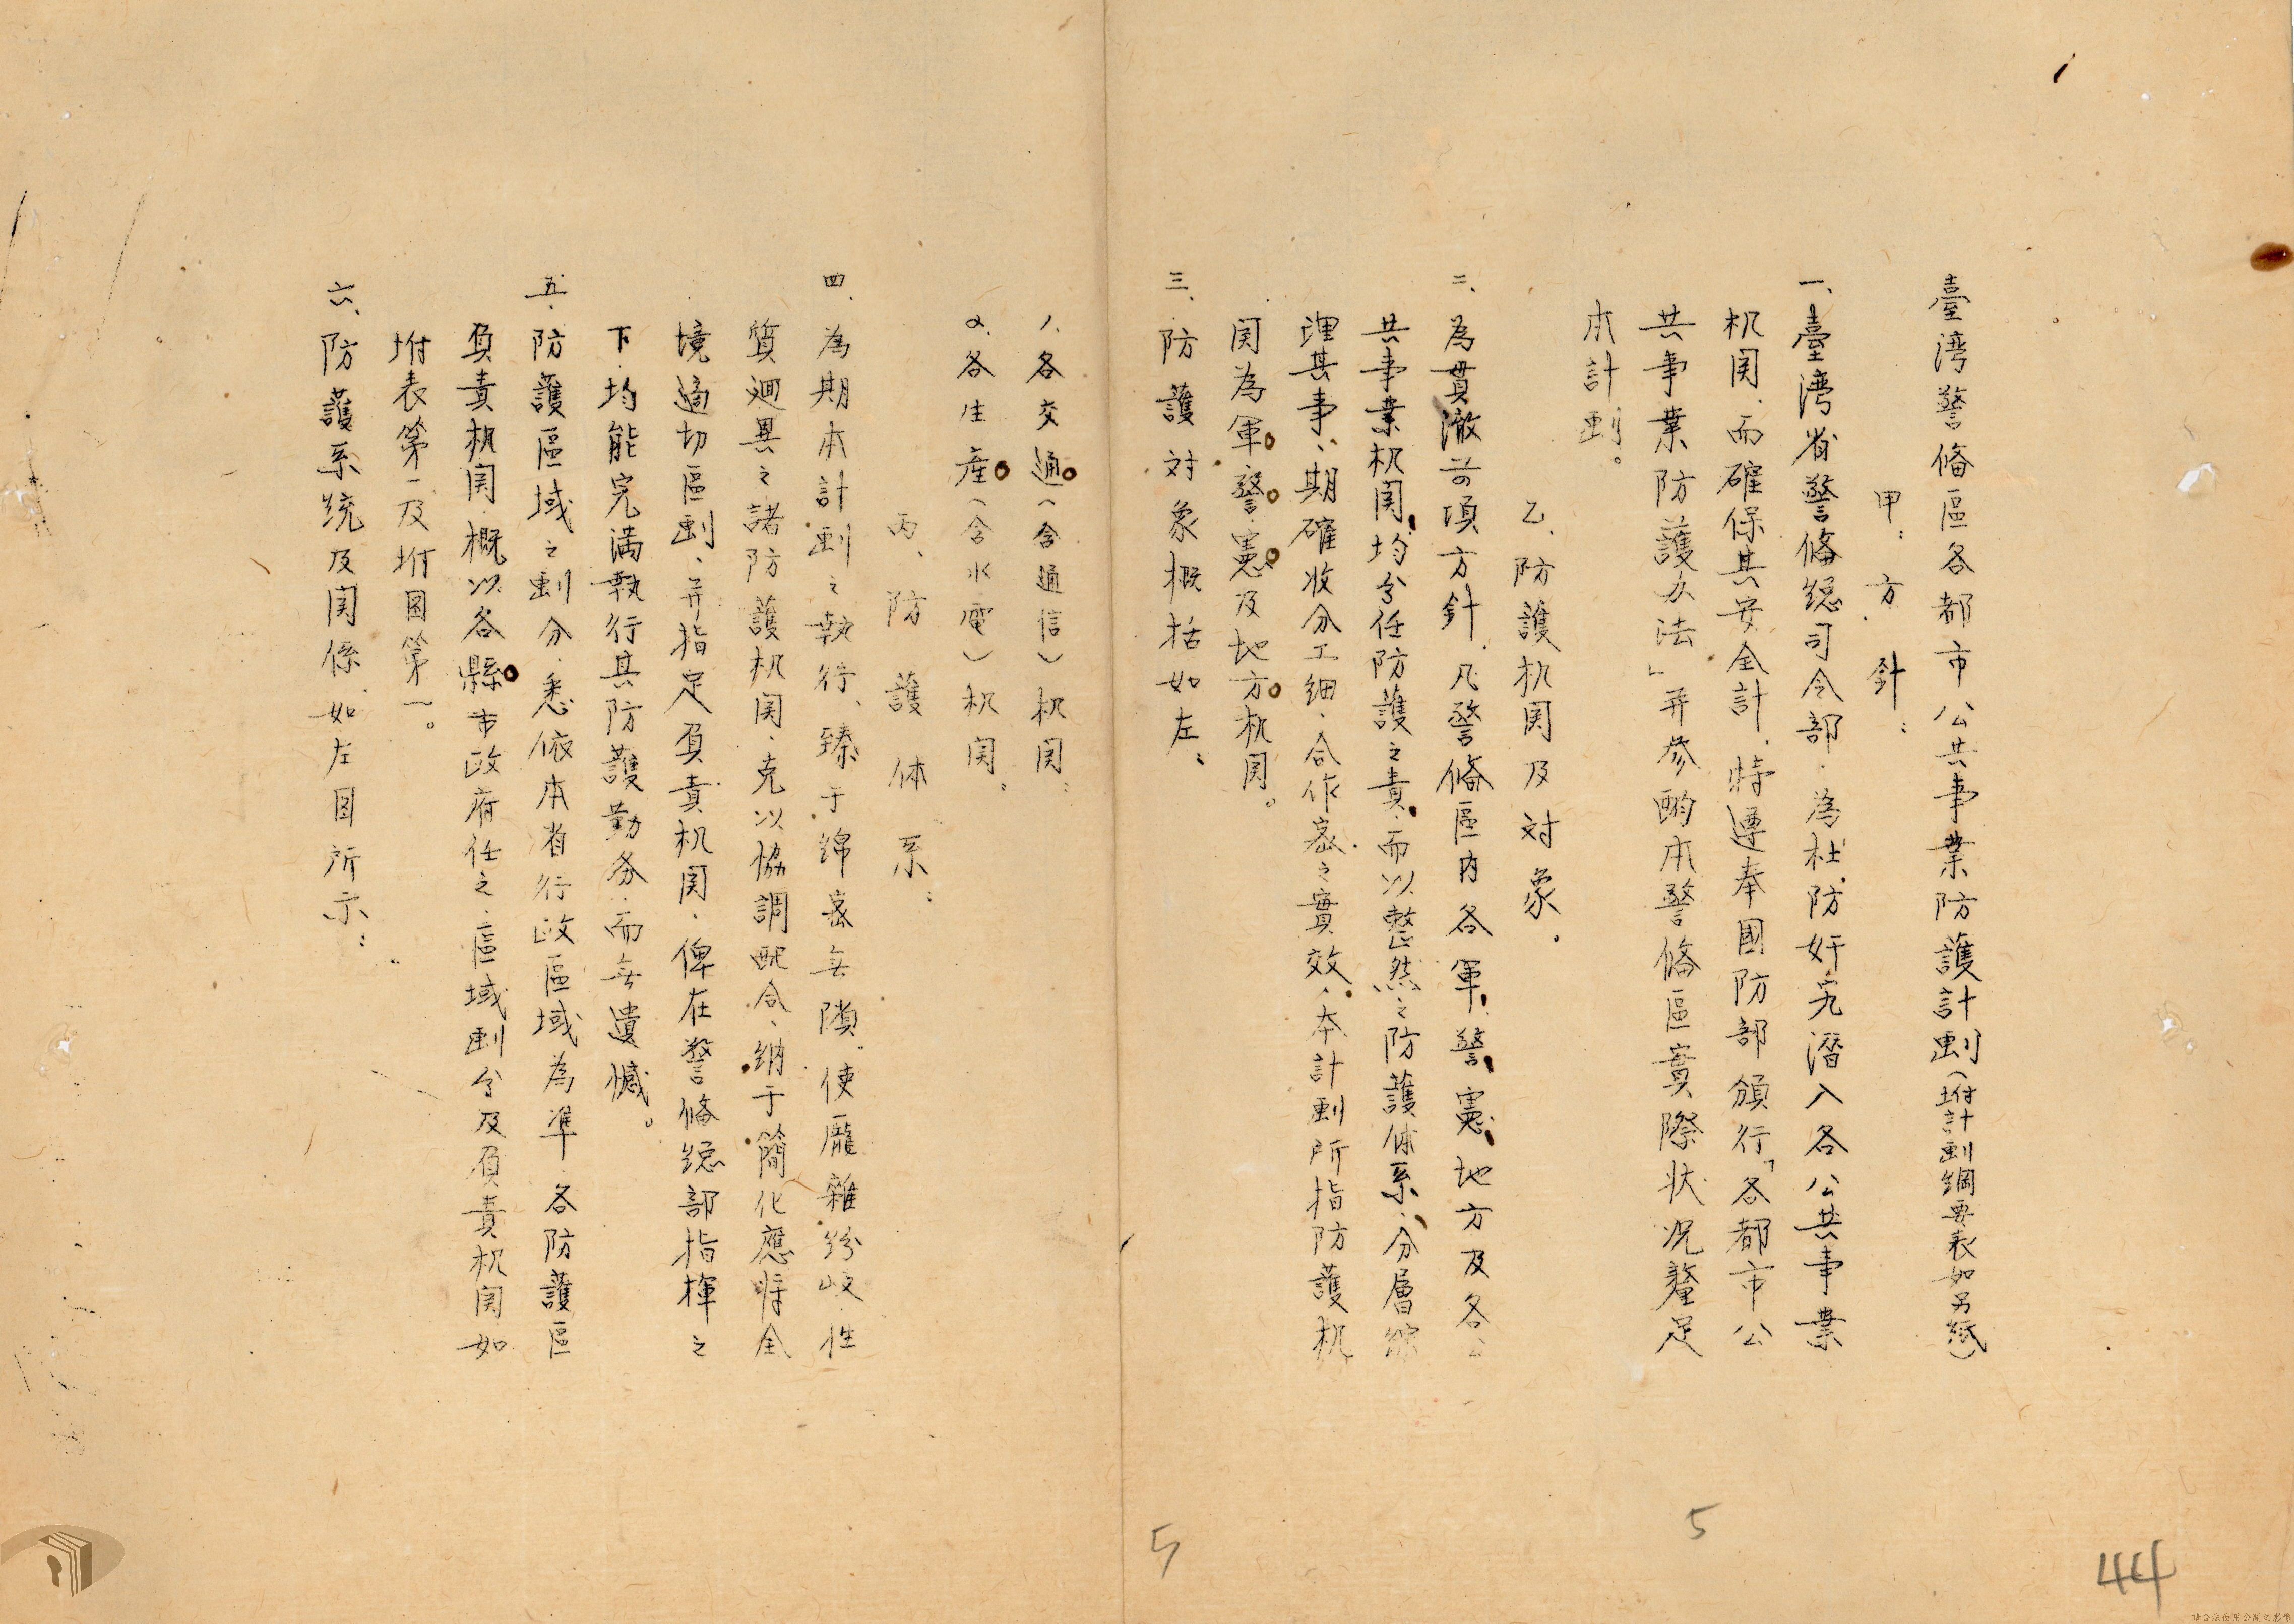 1
臺湾警備區各都市公共事業防護計劃（坿計劃綱要表如另紙）
甲：方針：
一、臺湾省警備総司令部．為杜防奸宄潛入各公共事業
机関．而確保其安全計．特遵奉國防部頒行「各都市公
共事業防護办法」并参酌本警備區實際状況釐定
本計劃。
乙、防護机関及対象．
二、為貫澈前項方針．凡警備區内各軍、警、憲、地方及各公
共事業机関、均分任防護之責、而以整然之防護体系、分層綜
理其事、期確收分工細、合作密之實效、本計劃所指防護机
関為軍。警。憲。及地方。机関。
三、防護対象概括如左：
1、各交通。（含通信）机関：
2、各生產。（含水電）机関：
丙、防護体系：
四、為期本計劃之執行、臻于綿密無隙．使龐雜紛岐．性
質迥異之諸防護机関、克以協調配合、納于簡化應將全
境適切區劃、并指定負責机関、俾在警備総部指揮之
下．均能完満執行其防護勤务．而無遺憾。
五．防護區域之劃分．悉依本省行政區域為準．各防護區
負責机関．概以各縣。市政府任之．區域劃分及負責机関如
坿表第一及坿図第一。
六、防護系統及関係．如左図所示：
5
5
44
請合法使用公開之影像